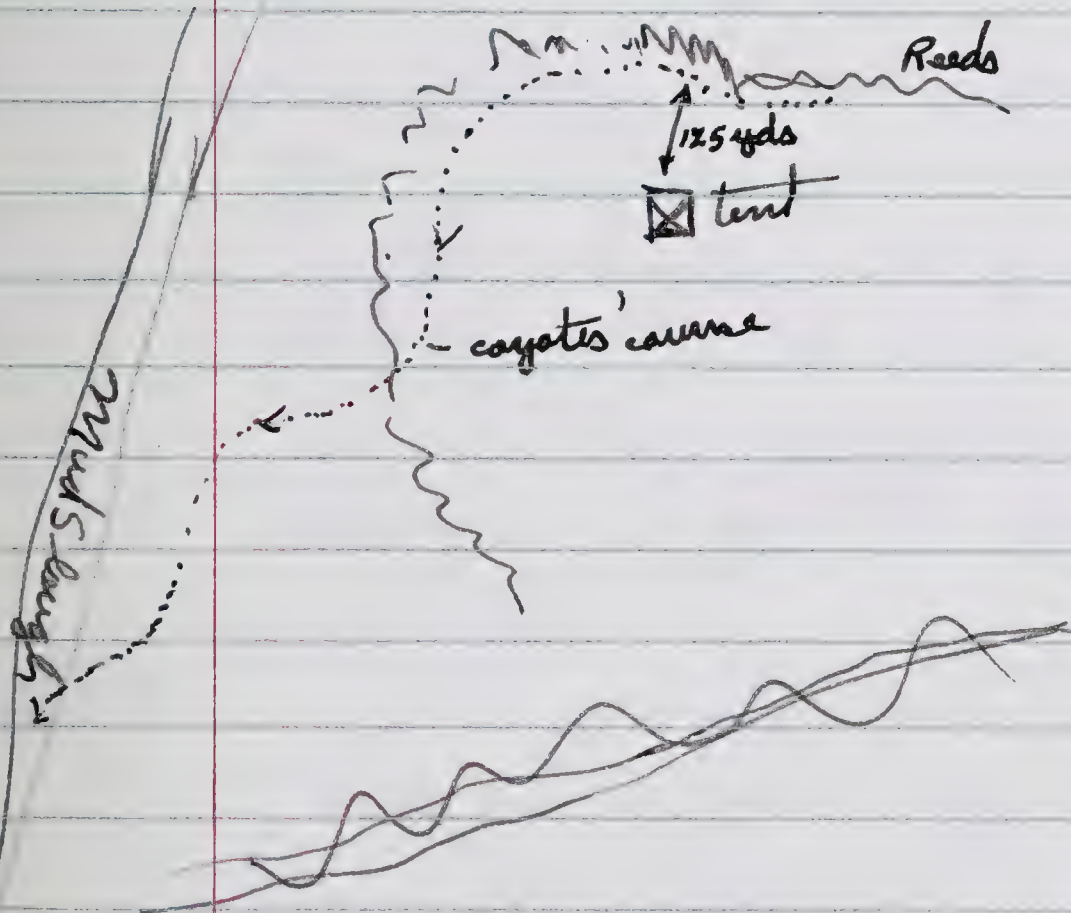 Reeds
125 yds
tent
coyotes' course
Mud Slough